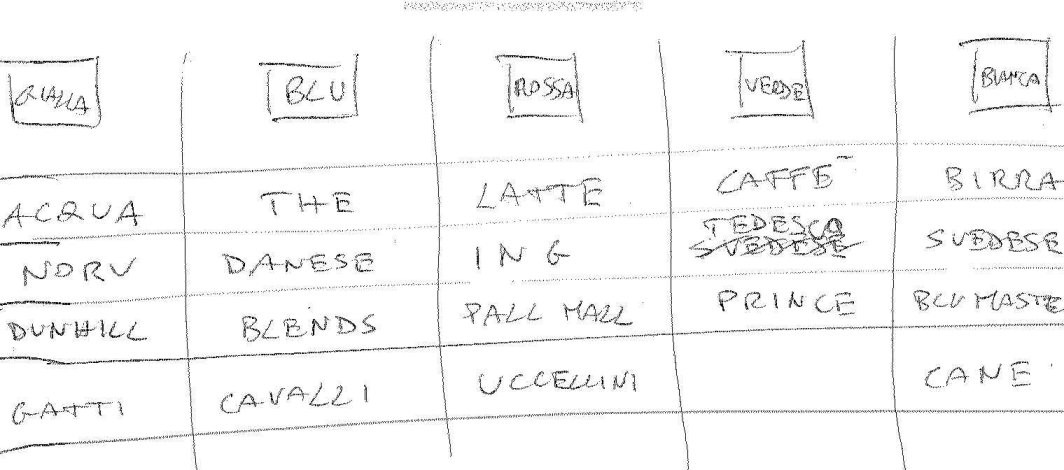 GIALLA BLU ROSSA VERDE BIANCA
ACQUA THE LATTE CAFFE BIRRA
NORV DANESE ING TEDESCO SVEDESE
SVEDESE
DUNHILL BLENDS PALL MALL PRINCE BLUMASTE
GATTI CAVALLI UCCELLINI CANE